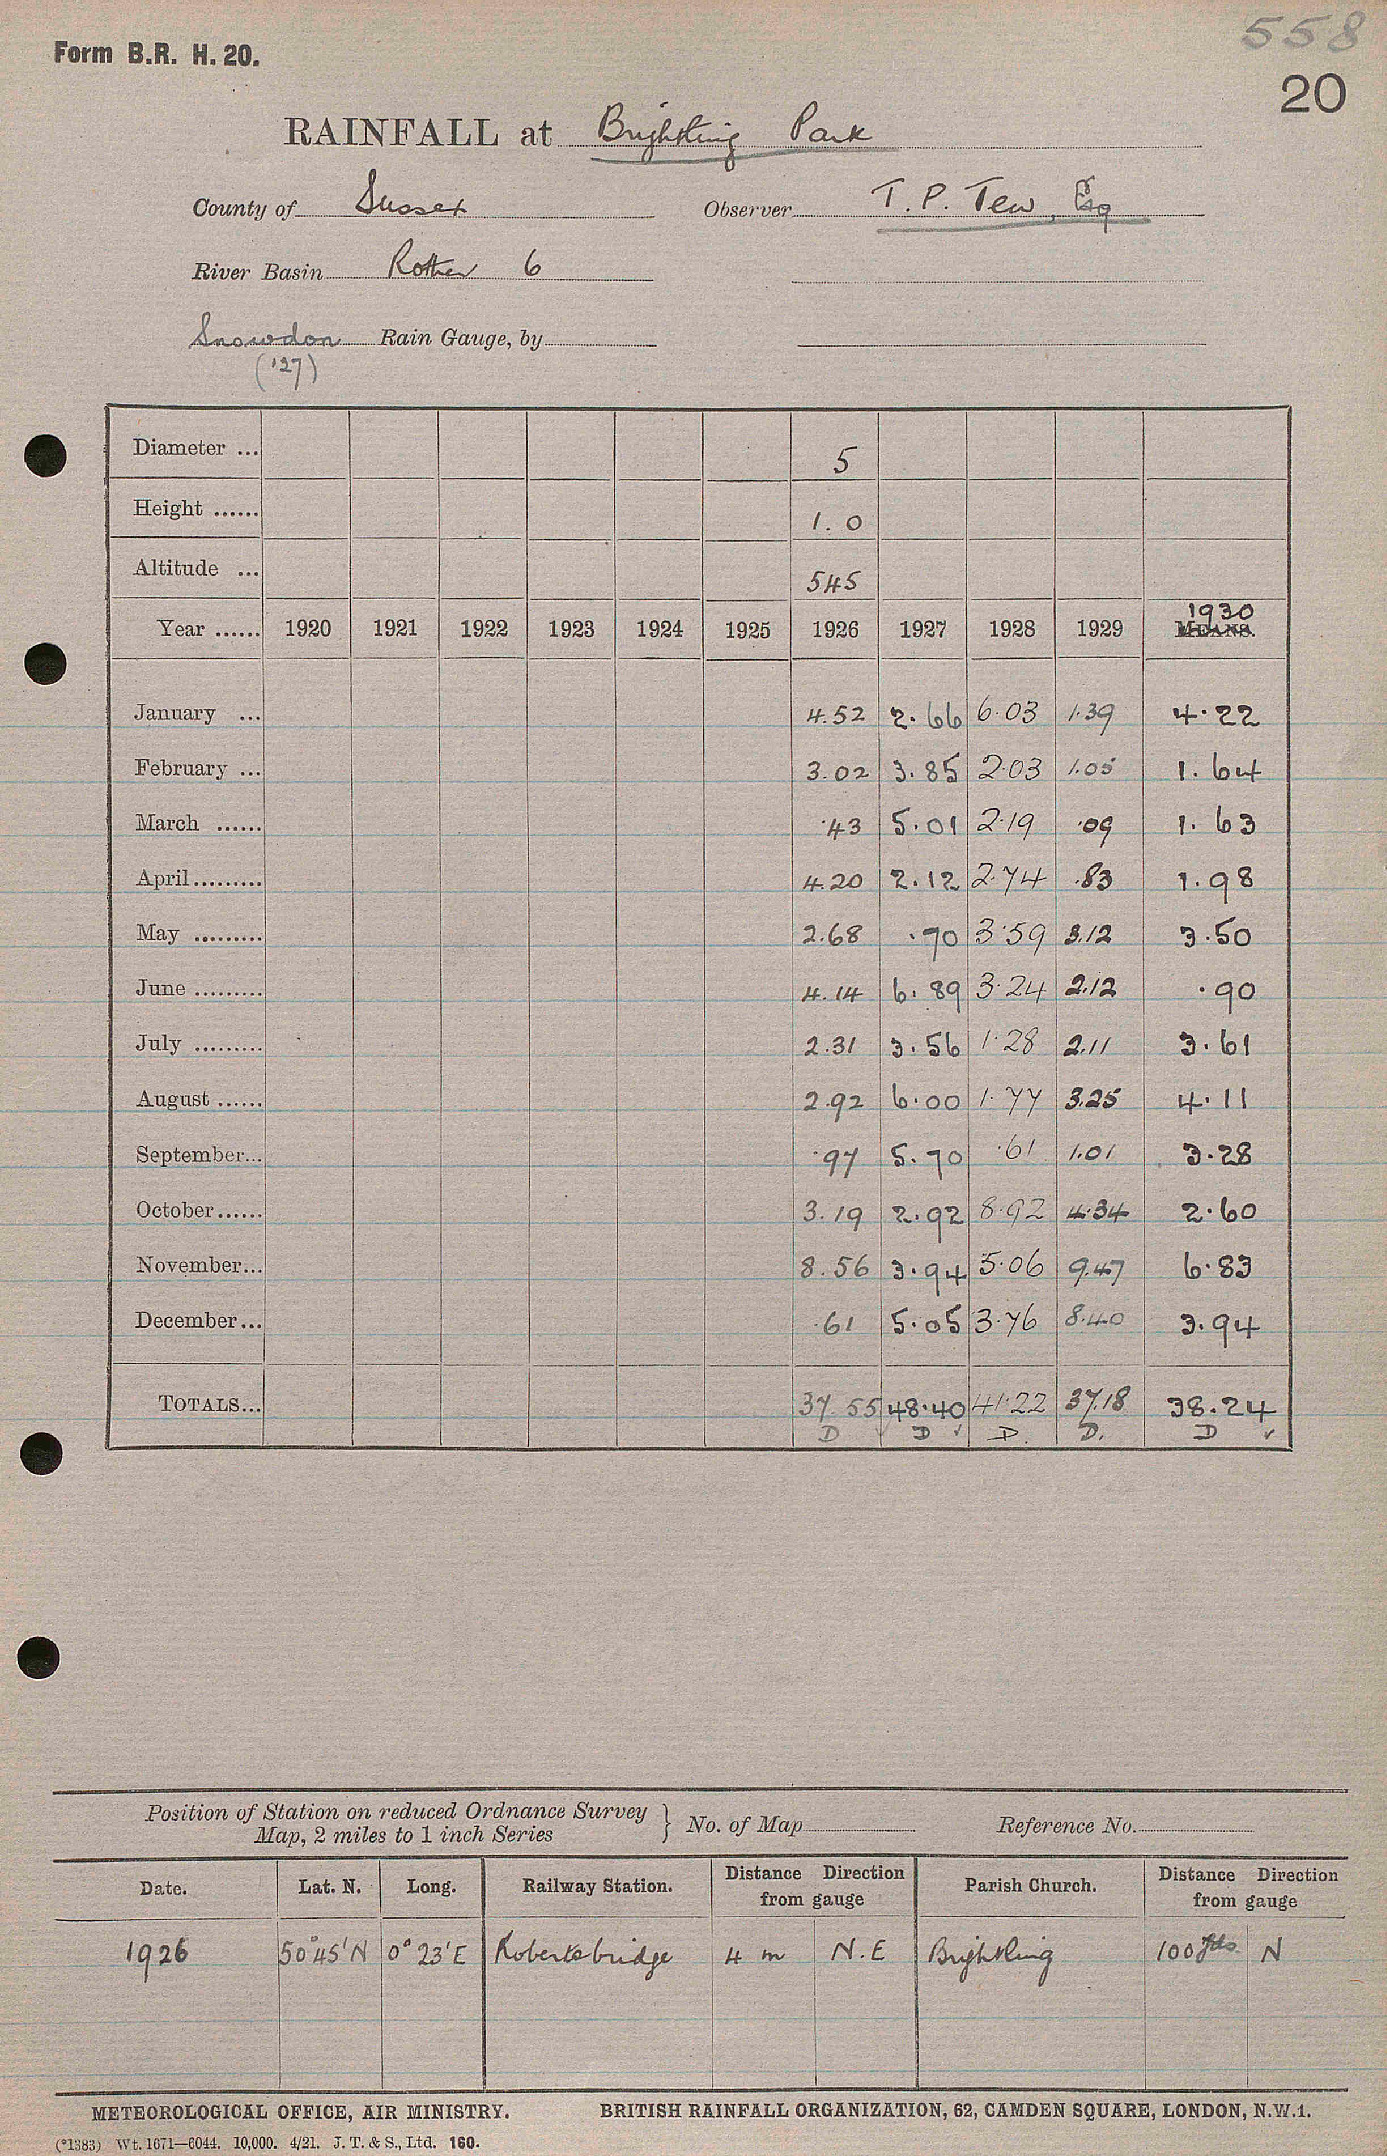 558
Form B.R. H. 20.
20
RAINFALL at Brightling Park
County of Sussex Observer T. P. Tew, Esq
River Basin Rother 6
Snowdon Rain Gauge, by
('27)
Diameter ... 5
Height ...... 1.0
Altitude ... 545
Year ...... 1920 1921 1922 1923 1924 1925 1926 1927 1928 1929 MEANS. 1930
January ... 4.52 2.66 6.03 1.39 4.22
February ... 3.02 3.85 2.03 1.05 1.64
March ...... .43 5.01 2.19 .09 1.63
April......... 4.20 2.12 2.74 .83 1.98
May ......... 2.68 .70 3.59 3.12 3.50
June ......... 4.14 6.89 3.24 2.12 .90
July ......... 2.31 3.56 1.28 2.11 3.61
August ...... 2.92 6.00 1.77 3.25 4.11
September... .97 5.70 .61 1.01 3.28
October...... 3.19 2.92 8.92 4.34 2.60
November... 8.56 3.94 5.06 9.47 6.83
December... .61 5.05 3.76 8.40 3.94
TOTALS... 37.55 48.40 41.22 37.18 38.24
D D ✓ D. D. D ✓
Position of Station on reduced Ordnance Survey Map, 2 miles to 1 inch Series } No. of Map Reference No.
Date. Lat. N. Long. Railway Station. Distance Direction from gauge Parish Church. Distance Direction from gauge
1926 50°45'N 0°23'E Robertsbridge 4 m N.E Brightling 100 yds. N
METEOROLOGICAL OFFICE, AIR MINISTRY. BRITISH RAINFALL ORGANIZATION, 62, CAMDEN SQUARE, LONDON, N.W.1.
(*1383) Wt. 1671—6044. 10,000. 4/21. J. T. & S., Ltd. 160.